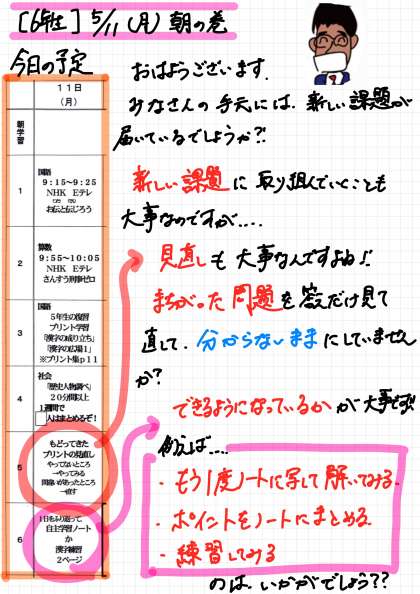 [6年生] 5/11(月) 朝の巻
今日の予定
11日
(月)
朝
学
習
1
国語
9:15~9:25
NHK Eテレ
お伝と伝じろう
2
算数
9:55~10:05
NHK Eテレ
さんすう刑事ゼロ
3
国語
5年生の復習
プリント学習
「漢字の成り立ち」
「漢字の広場1」
※プリント集p11
4
社会
「歴史人物調べ」
20分間以上
1週間で
人はまとめるぞ!
5
もどってきた
プリントの見直し
やってないところ
→やってみる
間違いがあったところ
→直す
6
1日をふり返って
自主学習ノート
か
漢字練習
2ページ
おはようございます。
みなさんの手元には、新しい課題が
届いているでしょうか?!
新しい課題に取り組んでいくことも
大事なのですが....
見直しも大事なんですよね!!
まちがった問題を答えだけ見て
直して、分からないままにしていません
か?
できるようになっているかが大事です!!
例えば.....
・もう1度ノートに写して解いてみる
・ポイントをノートにまとめる
・練習してみる
のは、いかがでしょう??